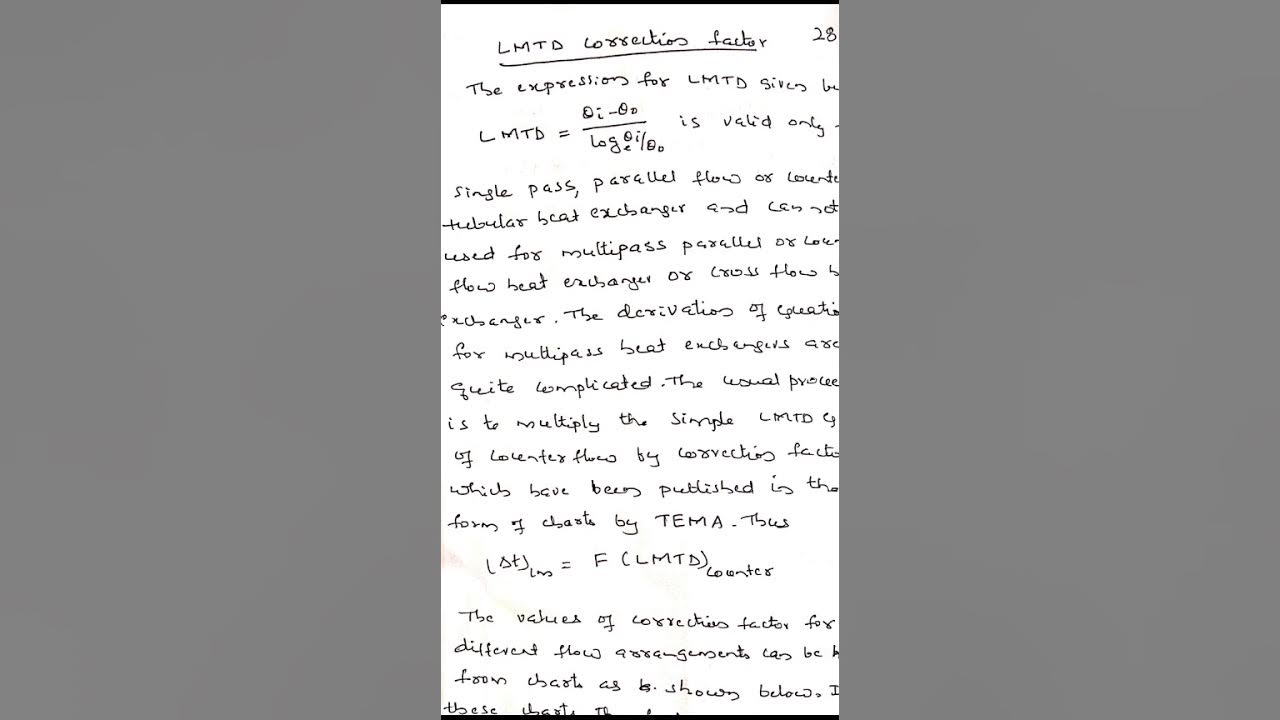 LMTD correction factor 28
The expression for LMTD given by
LMTD = θi-θo / loge θi/θo is valid only
single pass, parallel flow or counte
tubular heat exchanger and can not
used for multipass parallel or coun
flow heat exchanger or cross flow h
exchanger. The derivation of equatio
for multipass heat exchangers are
quite complicated. The usual proce
is to multiply the simple LMTD
of counter flow by correction facto
which have been published in the
form of charts by TEMA. Thus
(Δt)lm = F (LMTD)counter
The values of correction factor for
different flow arrangements can be h
from charts as shown below. I
these charts